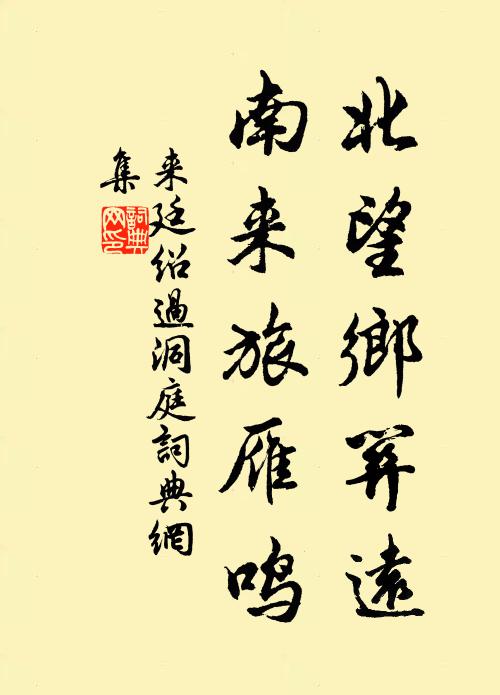 北望鄉関遠
南来旅雁鳴
来廷绍過洞庭詞典網
集
詞典
网印